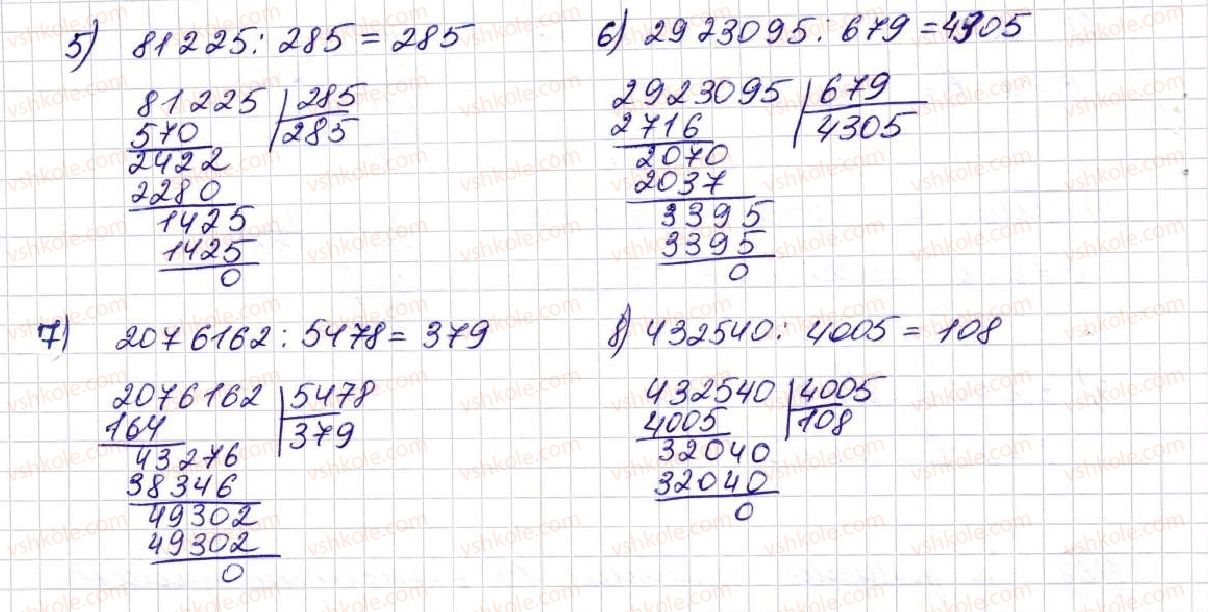 5) 81225 : 285 = 285
81225 | 285
570 | 285
2422
2280
1425
1425
0
6) 2923095 : 679 = 4305
2923095 | 679
2716 | 4305
2070
2037
3395
3395
0
7) 2076162 : 5478 = 379
2076162 | 5478
164 | 379
43276
38346
49302
49302
0
8) 432540 : 4005 = 108
432540 | 4005
4005 | 108
32040
32040
0
vshkole.com